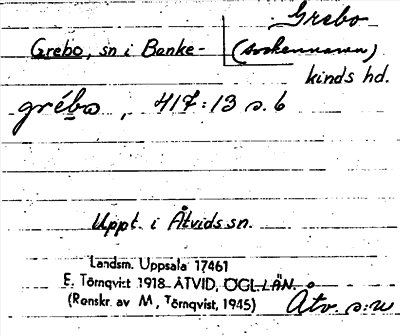 Grebo
Grebo, sn i Banke- (sockennamn)
kinds hd.
grébo, 417:13 s. 6
Uppt. i Åtvids sn.
Landsm. Uppsala 17461
E. Törnqvist 1918 ÅTVID, ÖGL.LÄN.
(Renskr. av M. Törnqvist, 1945)
Åtv.